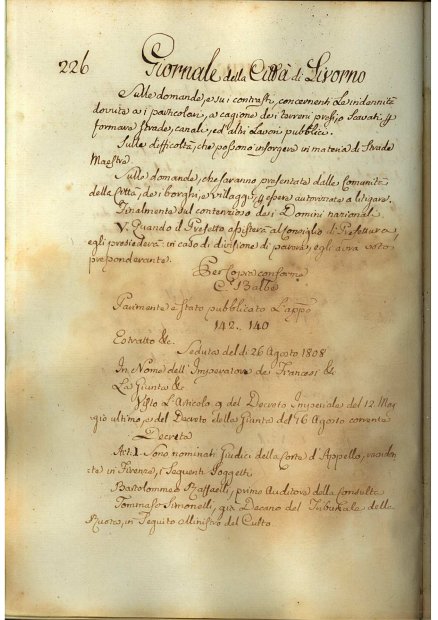 226 Giornale della Città di Livorno
Sulle domande, e sui contrasti, concernenti le indennità
dovute a i particolari, a cagione dei terreni presi, o scavati p
formare strade, canali, ed altri lavori pubblici.
Sulle difficoltà, che possono insorgere in materia di strade
Maestre
Sulle domande, che saranno presentate dalle Comunità
della Città, de i borghi, e villaggi, p essere autorizzate a litigare.
Finalmente sul contenzioso dei Domini nazionali
V. Quando il Prefetto assisterà al Consiglio di Prefettura,
egli presiederà: in caso di divisione di pareri, egli avrà voto
preponderante.
Per Copia conforme
C. Balbo
Parimente è stato pubblicato l'app.
142.. 140
Estratto &c.
Seduta del dì 26 Agosto 1808
In Nome dell'Imperatore de Francesi &c
La Giunta &c
Visto l'Articolo 9 del Decreto Imperiale del 12 Mag
gio ultimo, e del Decreto della Giunta del 16 Agosto corrente
Decreta
Art. 1. Sono nominati Giudici della Corte d'Appello, residen
te in Firenze, i seguenti soggetti
Bartolommeo Raffaelli, primo Auditore della Consulta
Tommaso Simonelli, già Decano del Tribunale della
Ruota, in seguito Ministro del Culto